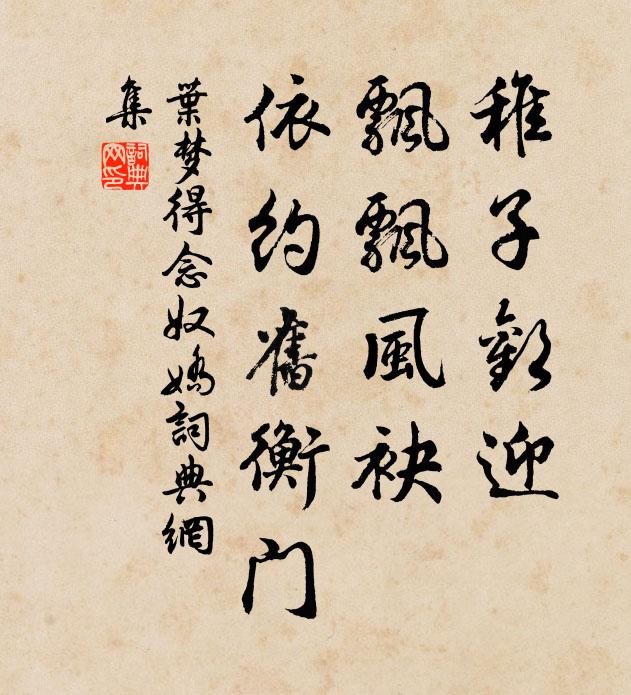 稚子歡迎
飄飄風袂
依約舊衡门
葉梦得念奴嬌詞典網
集
詞典
网印